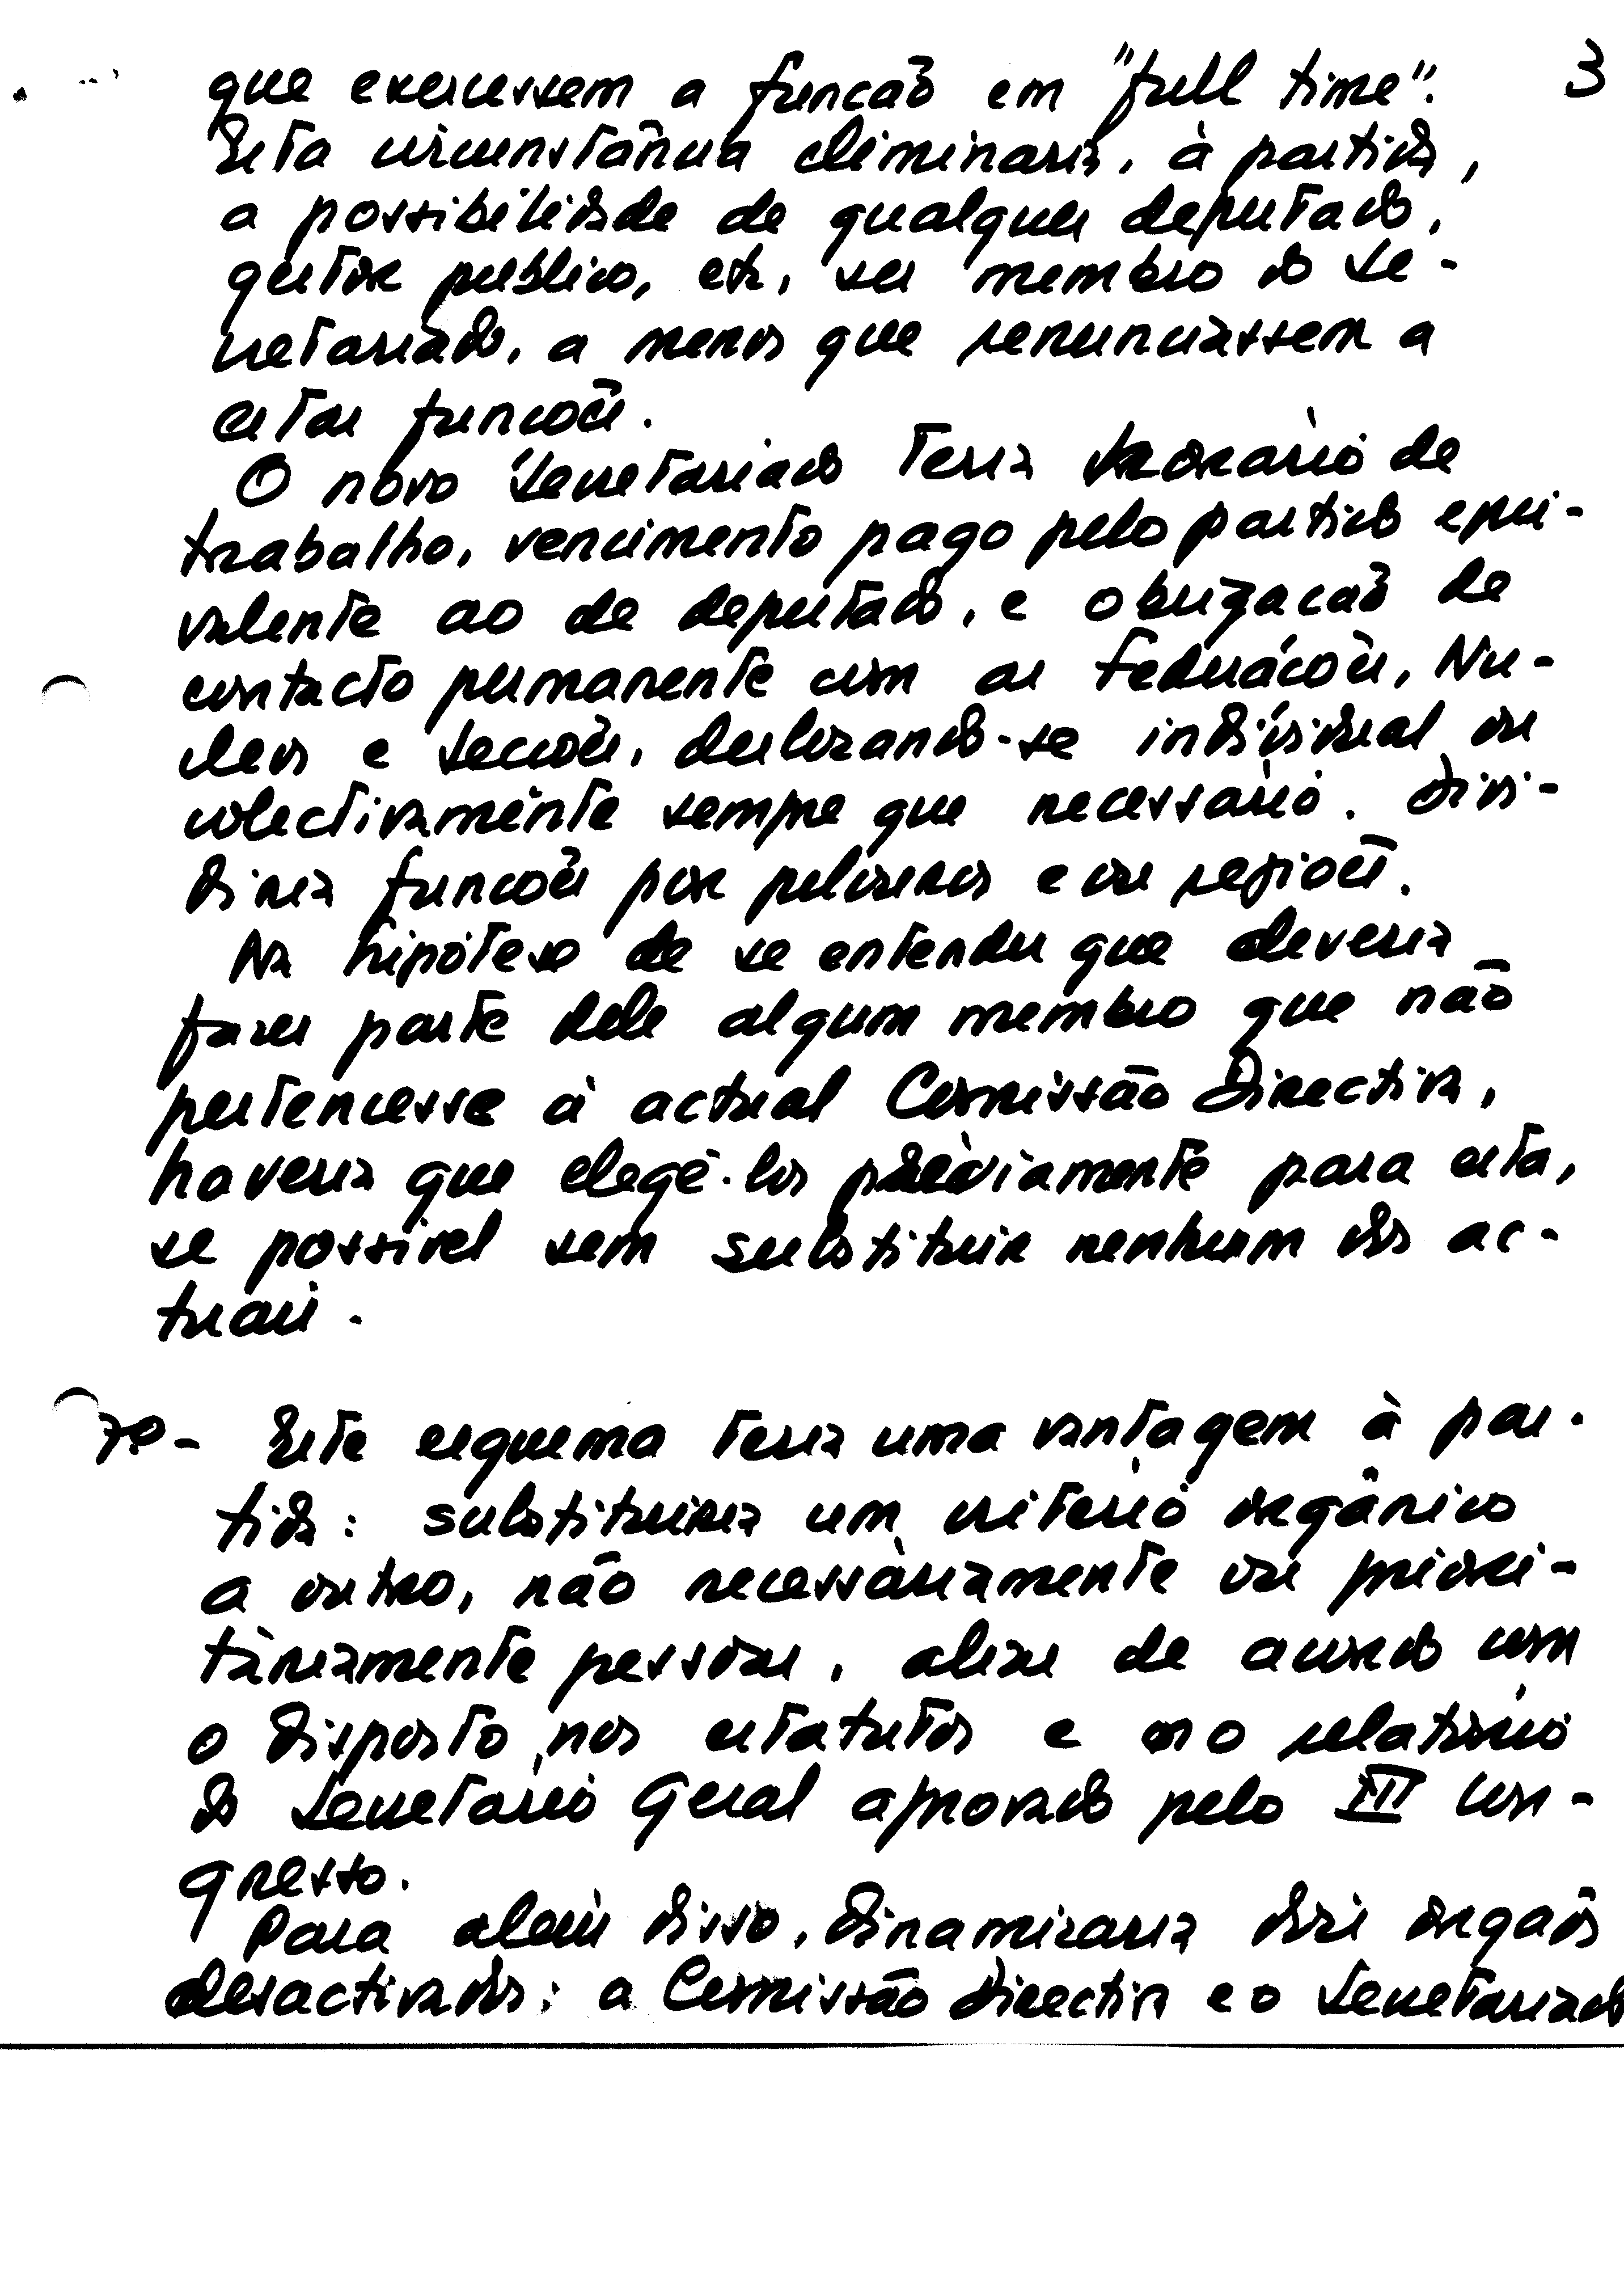 3
que exercessem a função em "full time".
Esta circunstância eliminaria, à partida,
a possibilidade de qualquer deputado,
gestor público, etc, ser membro do Se-
cretariado, a menos que renunciassem a
estas funções.
O novo Secretariado teria horário de
trabalho, vencimento pago pelo partido equi-
valente ao de deputado, e obrigação de
contacto permanente com as Federações, Nú-
cleos e Secções, deslocando-se individual ou
colectivamente sempre que necessário. Divi-
diria funções por pelouros e ou regiões.
Na hipótese de se entender que deveria
fazer parte dele algum membro que não
pertencesse à actual Comissão Directiva,
haveria que elegê-los prèviamente para esta,
se possível sem substituir nenhum dos ac-
tuais.
7º- Este esquema teria uma vantagem à par-
tida: substituiria um critério orgânico
a outro, não necessàriamente ou priori-
tàriamente pessoal, aliás de acordo com
o disposto nos estatutos e no relatório
do Secretário Geral aprovado pelo III Con-
gresso.
Para além disso, dinamizaria dois orgãos
desactivados: a Comissão Directiva e o Secretariado